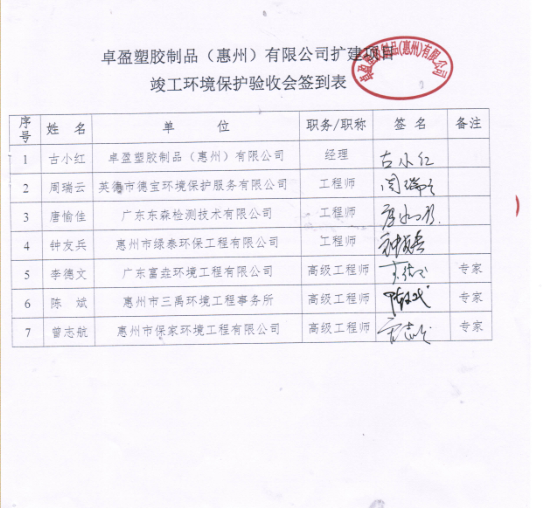 卓盈塑胶制品（惠州）有限公司扩建项目
竣工环境保护验收会签到表
序号 姓 名 单 位 职务/职称 签 名 备注
1 古小红 卓盈塑胶制品（惠州）有限公司 经理 古小红
2 周瑞云 英德市德宝环境保护服务有限公司 工程师 周瑞云
3 唐愉佳 广东东森检测技术有限公司 工程师
4 钟友兵 惠州市绿泰环保工程有限公司 工程师 钟友兵
5 李德文 广东富垚环境工程有限公司 高级工程师 专家
6 陈 斌 惠州市三禹环境工程事务所 高级工程师 专家
7 曾志航 惠州市保家环境工程有限公司 高级工程师 专家
卓盈塑胶制品(惠州)有限公司